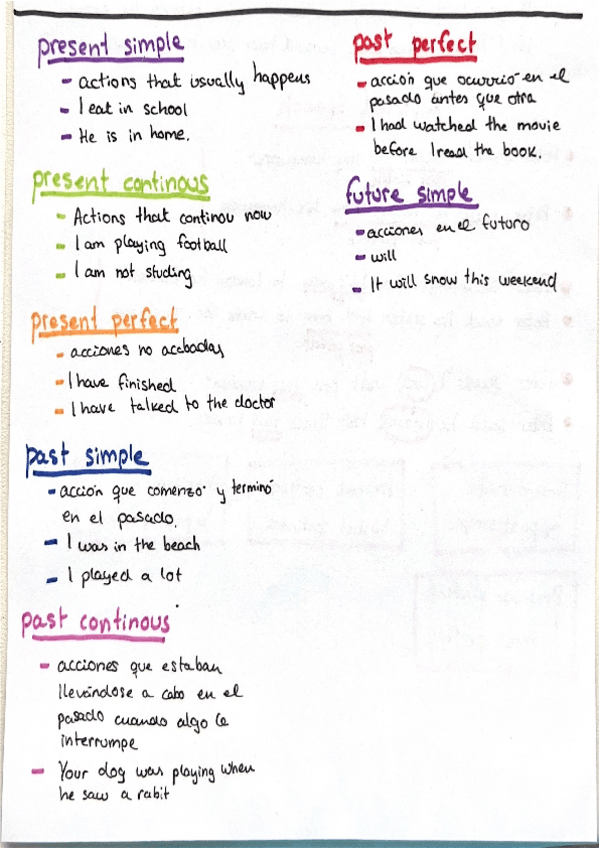 present simple
- actions that usually happens
- I eat in school
- He is in home.
present continous
- Actions that continou now
- I am playing football
- I am not studing
present perfect
- acciones no accbadas
- I have finished
- I have talked to the doctor
past simple
- acción que comenzó y terminó
en el pasado.
- I was in the beach
- I played a lot
past continous
- acciones que estaban
llevándose a cabo en el
pasado cuando algo la
interrumpe
- Your dog was playing when
he saw a rabit
past perfect
- acción que ocurrió en el
pasado antes que otra
- I had watched the movie
before I read the book.
future simple
- acciones en el futuro
- will
- It will snow this weekend